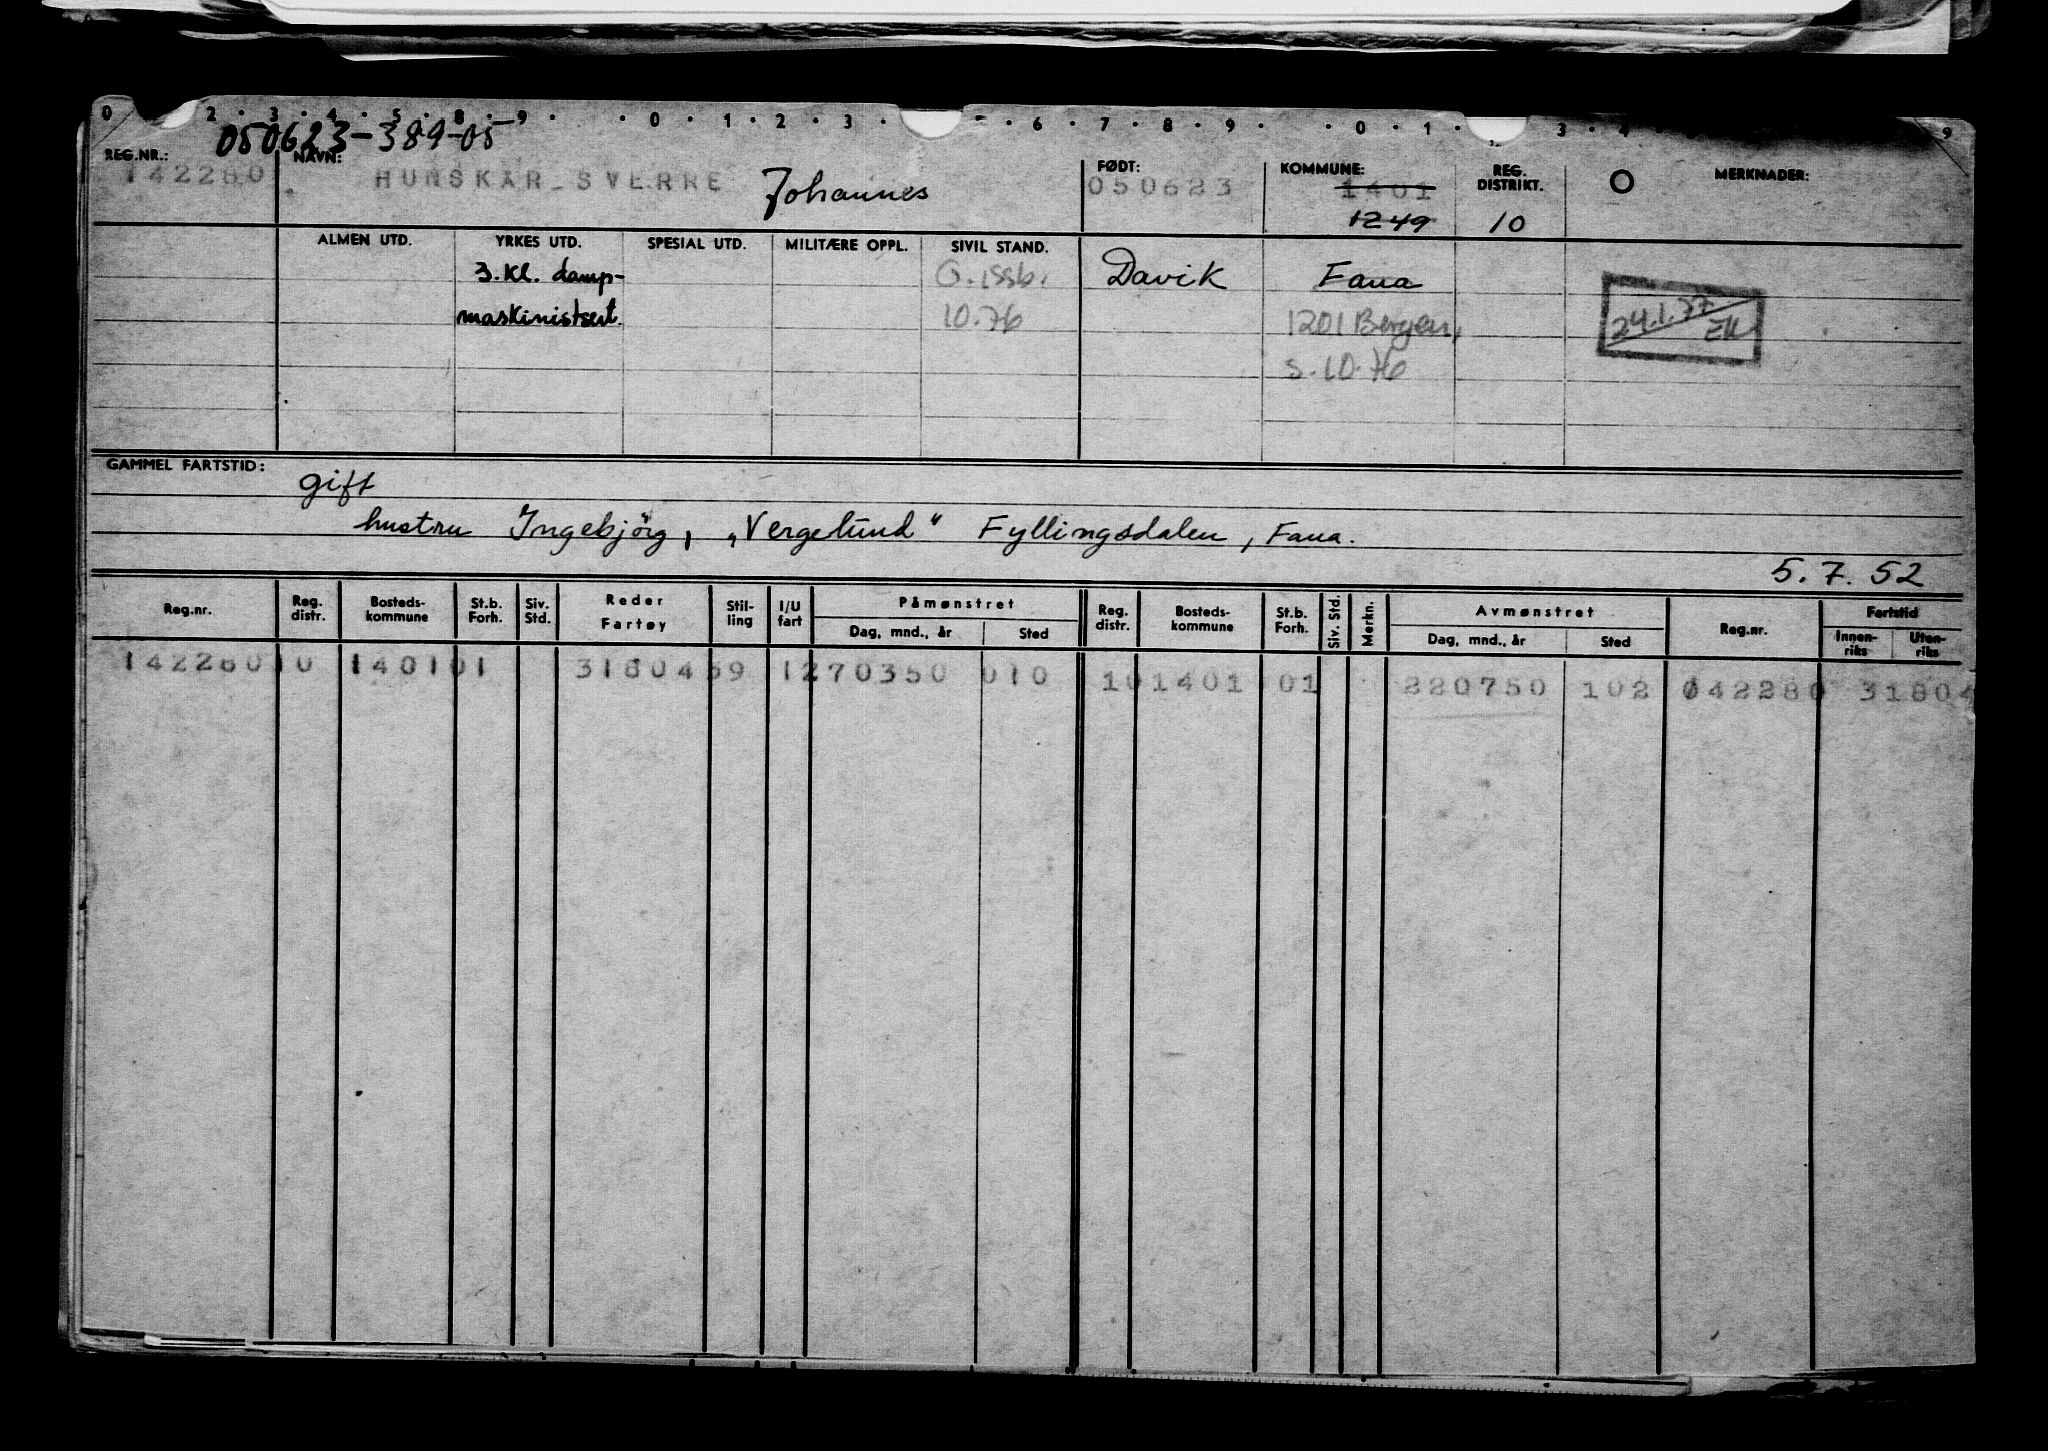 0 2 3 4 5 8 9 0 1 2 3 6 7 8 9 0 1 3 4 9
050623-389-05
REG.NR.: NAVN: FØDT: KOMMUNE: REG. DISTRIKT. O MERKNADER:
142280 HUNSKAR SVERRE Johannes 050623 1401
1249 10
ALMEN UTD. YRKES UTD. SPESIAL UTD. MILITÆRE OPPL. SIVIL STAND.
3. Kl. damp- G. issb. Davik Fana
maskinistsert. 10.76 1201 Bergen, 24.1.77 EK
s. 10.76
GAMMEL FARTSTID:
gift
hustru Ingebjörg, „Vergelund“ Fyllingsdalen, Fana.
5.7.52
Reg.nr. Reg. distr. Bosteds-kommune St.b. Forh. Siv. Std. Reder Fartøy Stil-ling I/U fart Påmønstret Reg. distr. Bosteds-kommune St.b. Forh. Siv. Std. Merkn. Avmønstret Reg.nr. Fartstid
Dag, mnd., år Sted Dag, mnd., år Sted Innen-riks Uten-riks
142280 10 1401 01 3180459 1 270350 010 10 1401 01 220750 102 042280 31804